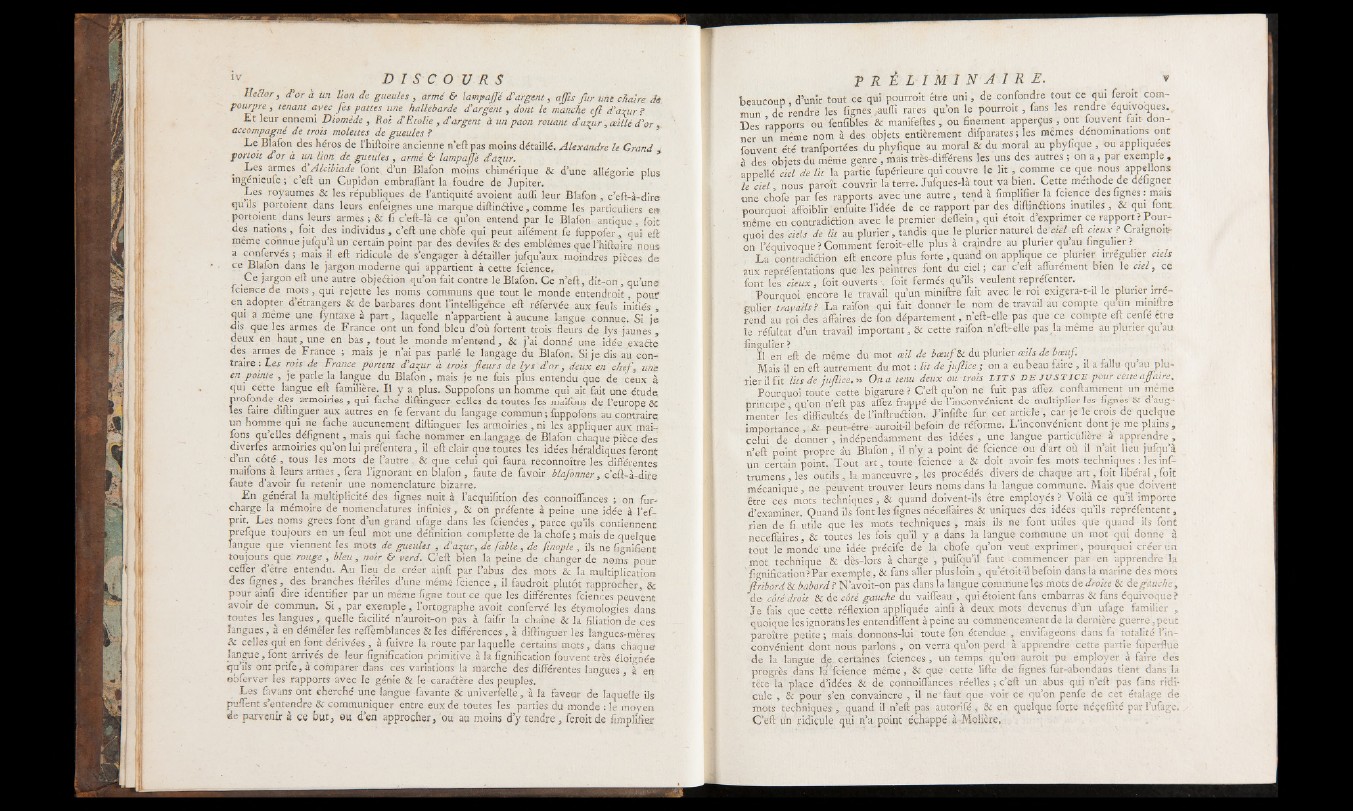 iv DISCOURS
Hector, d'or à un lion de gueules, armé & lampassé d'argent, assis sur une chaire de
pourpre, tenant avec ses pattes une hallebarde d'argent, dont le manche est d'azur ?
Et leur ennemi Diomède, Roi d'Etolie, d'argent à un paon rouant d'azur, œillé d'or,
accompagné de trois molettes de gueules ?
Le Blason des héros de l'histoire ancienne n'est pas moins détaillé. Alexandre le Grand,
portoit d'or à un lion de gueules, armé & lampassé d'azur.
Les armes d'Alcibiade sont d'un Blason moins chimérique & d'une allégorie plus
ingénieuse ; c'est un Cupidon embrassant la foudre de Jupiter.
Les royaumes & les républiques de l'antiquité avoient aussi leur Blason, c'est-à-dire
qu'ils portoient dans leurs enseignes une marque distinctive, comme les particuliers en
portoient dans leurs armes ; & si c'est-là ce qu'on entend par le Blason antique, soit
des nations, soit des individus, c'est une chose qui peut aisément se supposer, qui est
même connue jusqu'à un certain point par des devises & des emblêmes que l'histoire nous
a conservés ; mais il est ridicule de s'engager à détailler jusqu'aux moindres pièces de
ce Blason dans le jargon moderne qui appartient à cette science.
Ce jargon est une autre objection qu'on fait contre le Blason. Ce n'est, dit-on, qu'une
science de mots, qui rejette les noms communs que tout le monde entendroit, pour
en adopter d'étrangers & de barbares dont l'intelligence est réservée aux seuls initiés,
qui a même une syntaxe à part, laquelle n'appartient à aucune langue connue. Si je
dis que les armes de France ont un fond bleu d'où sortent trois fleurs de lys jaunes,
deux en haut, une en bas, tout le monde m'entend, & j'ai donné une idée exacte
des armes de France ; mais je n'ai pas parlé le langage du Blason. Si je dis au con-
traire : Les rois de France portent d'azur à trois fleurs de lys d'or, deux en chef, une
en pointe, je parle la langue du Blason, mais je ne suis plus entendu que de ceux à
qui cette langue est familière. Il y a plus. Supposons un homme qui ait fait une étude
profonde des armoiries, qui sache distinguer celles de toutes les maisons de l'europe &
les faire distinguer aux autres en se servant du langage commun ; supposons au contraire
un homme qui ne sache aucunement distinguer les armoiries, ni les appliquer aux mai-
sons qu'elles désignent, mais qui sache nommer en langage de Blason chaque pièce des
diverses armoiries qu'on lui présentera, il est clair que toutes les idées héraldiques seront
d'un côté, tous les mots de l'autre & que celui qui saura reconnoître les différentes
maisons à leurs armes, sera l'ignorant en blason, faute de savoir blasonner, c'est-à-dire
faute d'avoir su retenir une nomenclature bizarre.
En général la multiplicité des signes nuit à l'acquisition des connoissances ; on sur-
charge la mémoire de nomenclatures infinies, & on présente à peine une idée à l'es-
prit. Les noms grecs sont d'un grand usage dans les sciences, parce qu'ils contiennent
presque toujours en un seul mot une définition complette de la chose ; mais de quelque
langue que viennent les mots de gueules, d'azur, de sable, de sinople, ils ne signifient
toujours que rouge, bleu, noir & verd. C'est bien la peine de changer de noms pour
cesser d'être entendu. Au lieu de créer ainsi par l'abus des mots & la multiplication
des signes, des branches stériles d'une même science, il faudroit plutôt rapprocher, &
pour ainsi dire identifier par un même signe tout ce que les différentes sciences peuvent
avoir de commun. Si, par exemple, l'ortographe avoit conservé les étymologies dans
toutes les langues, quelle facilité n'auroit-on pas à saisir la chaîne & la filiation de ces
langues, à en démêler les ressemblances & les différences, à distinguer les langues-mères
& celles qui en sont dérivées, à suivre la route par laquelle certains mots, dans chaque
langue, sont arrivés de leur signification primitive à la signification souvent très éloignée
qu'ils ont prise, à comparer dans ces variations la marche des différentes langues, à en
observer les rapports avec le génie & le caractère des peuples.
Les savans ont cherché une langue savante & universelle, à la faveur de laquelle ils
pussent s'entendre & communiquer entre eux de toutes les parties du monde : le moyen
de parvenir à ce but, ou d'en approcher, ou au moins d'y tendre, seroit de simplifier
PRÉLIMINAIRE. v
beaucoup, d'unir tout ce qui pourroit être uni, de confondre tout ce qui seroit com-
mun, de rendre les signes aussi rares qu'on le pourroit, sans les rendre équivoques.
Des rapports ou sensibles & manifestes, ou finement apperçus, ont souvent fait don-
ner un même nom à des objets entièrement disparates ; les mêmes dénominations ont
souvent été transportées du physique au moral & du moral au physique, ou appliquées
à des objets du même genre, mais très-différens les uns des autres ; on a, par exemple,
appellé ciel de lit la partie supérieure qui couvre le lit, comme ce que nous appellons
le ciel, nous paroît couvrir la terre. Jusques-là tout va bien. Cette méthode de désigner
une chose par ses rapports avec une autre, tend à simplifier la science des signes : mais
pourquoi affoiblir ensuite l'idée de ce rapport par des distinctions inutiles, & qui sont
même en contradiction avec le premier dessein, qui étoit d'exprimer ce rapport ? Pour-
quoi des ciels de lit au plurier, tandis que le plurier naturel de ciel est cieux ? Craignoit-
on l'équivoque ? Comment seroit-elle plus à craindre au plurier qu'au singulier ?
La contradiction est encore plus forte, quand on applique ce plurier irrégulier ciels
aux représentations que les peintres font du ciel ; car c'est assurément bien le ciel, ce
sont les cieux, soit ouverts, soit fermés qu'ils veulent représenter.
Pourquoi encore le travail qu'un ministre fait avec le roi exigera-t-il le plurier irré-
gulier travails ? La raison qui fait donner le nom de travail au compte qu'un ministre
rend au roi des affaires de son département, n'est-elle pas que ce compte est censé être
le résultat d'un travail important, & cette raison n'est-elle pas la même au plurier qu'au
singulier ?
Il en est de même du mot œil de bœuf & du plurier œils de bœuf.
Mais il en est autrement du mot : lit de justice ; on a eu beau faire, il a fallu qu'au plu-
rier il fît lits de justice. » On a tenu deux ou trois LITS DE JUSTICE pour cette affaire.
Pourquoi toute cette bigarure ? C'est qu'on ne suit pas assez constamment un même
principe, qu'on n'est pas assez frappé de l'inconvénient de multiplier les signes & d'aug-
menter les difficultés de l'instruction. J'insiste sur cet article, car je le crois de quelque
importance, & peut-être auroit-il besoin de réforme. L'inconvénient dont je me plains,
celui de donner, indépendamment des idées, une langue particulière à apprendre,
n'est point propre au Blason, il n'y a point de science ou d'art où il n'ait lieu jusqu'à
un certain point. Tout art, toute science a & doit avoir ses mots techniques : les ins-
trumens, les outils, la manœuvre, les procédés divers de chaque art, soit libéral, soit
mécanique, ne peuvent trouver leurs noms dans la langue commune. Mais que doivent
être ces mots techniques, & quand doivent-ils être employés ? Voilà ce qu'il importe
d'examiner. Quand ils sont les signes nécessaires & uniques des idées qu'ils représentent,
rien de si utile que les mots techniques, mais ils ne sont utiles que quand ils sont
necessaires, & toutes les fois qu'il y a dans la langue commune un mot qui donne à
tout le monde une idée précise de la chose qu'on veut exprimer, pourquoi créer un
mot technique & dès-lors à charge, puisqu'il faut commencer par en apprendre la
signification ? Par exemple, & sans aller plus loin, qu'étoit-il besoin dans la marine des mots
stribord & babord ? N'avoit-on pas dans la langue commune les mots de droite & de gauche,
de côté droit & de côté gauche du vaisseau, qui étoient sans embarras & sans équivoque ?
Je sais que cette réflexion appliquée ainsi à deux mots devenus d'un usage familier,
quoique les ignorans les entendissent à peine au commencement de la dernière guerre, peut
paroître petite ; mais donnons-lui toute son étendue, envisageons dans sa totalité l'in-
convénient dont nous parlons, on verra qu'on perd à apprendre cette partie superflue
de la langue de certaines sciences, un temps qu'on auroit pu employer à faire des
progrès dans la science même, & que cette liste de signes sur-abondans tient dans la
tête la place d'idées & de connoissances réelles ; c'est un abus qui n'est pas sans ridi-
cule, & pour s'en convaincre, il ne faut que voir ce qu'on pense de cet étalage de
mots techniques, quand il n'est pas autorisé, & en quelque sorte nécessité par l'usage.
C'est un ridicule qui n'a point échappé à Molière.